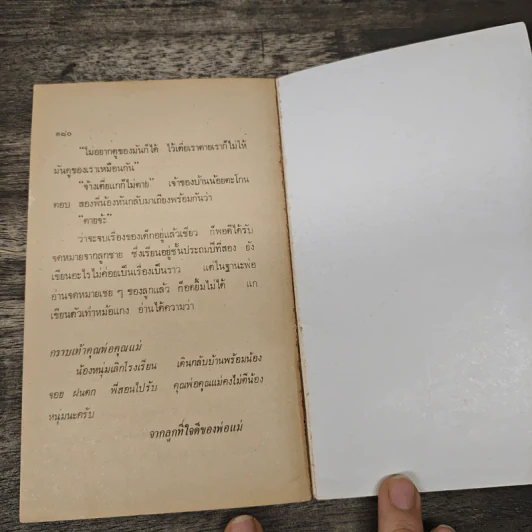 ๑๘๐
"ไม่อยากดูของมันก็ได้ ไว้เดี๋ยวเราตายเราก็ไม่ให้
มันดูของเราเหมือนกัน"
"จ้างเดี๋ยแกก็ไม่ตาย" เจ้าของบ้านน้อยตะโกน
ตอบ สองพี่น้องหันกลับมาเถียงพร้อมกันว่า
"ตายซิ่"
ว่าจะจบเรื่องของเด็กอยู่แล้วเชียว ก็พอดีได้รับ
จดหมายจากลูกชาย ซึ่งเรียนอยู่ชั้นประถมปีที่สอง ยัง
เขียนอะไรไม่ค่อยเป็นเรื่องเป็นราว แต่ในฐานะพ่อ
อ่านจดหมายเชย ๆ ของลูกแล้ว ก็อดยิ้มไม่ได้ แก
เขียนตัวเท่าหม้อแกง อ่านได้ความว่า
กราบเท้าคุณพ่อคุณแม่
น้องหนุ่มเลิกโรงเรียน เดินกลับบ้านพร้อมน้อง
จอย ฝนตก พี่สอนไปรับ คุณพ่อคุณแม่คงไม่ตีน้อง
หนุ่มนะครับ
จากลูกที่ใจดีของพ่อแม่